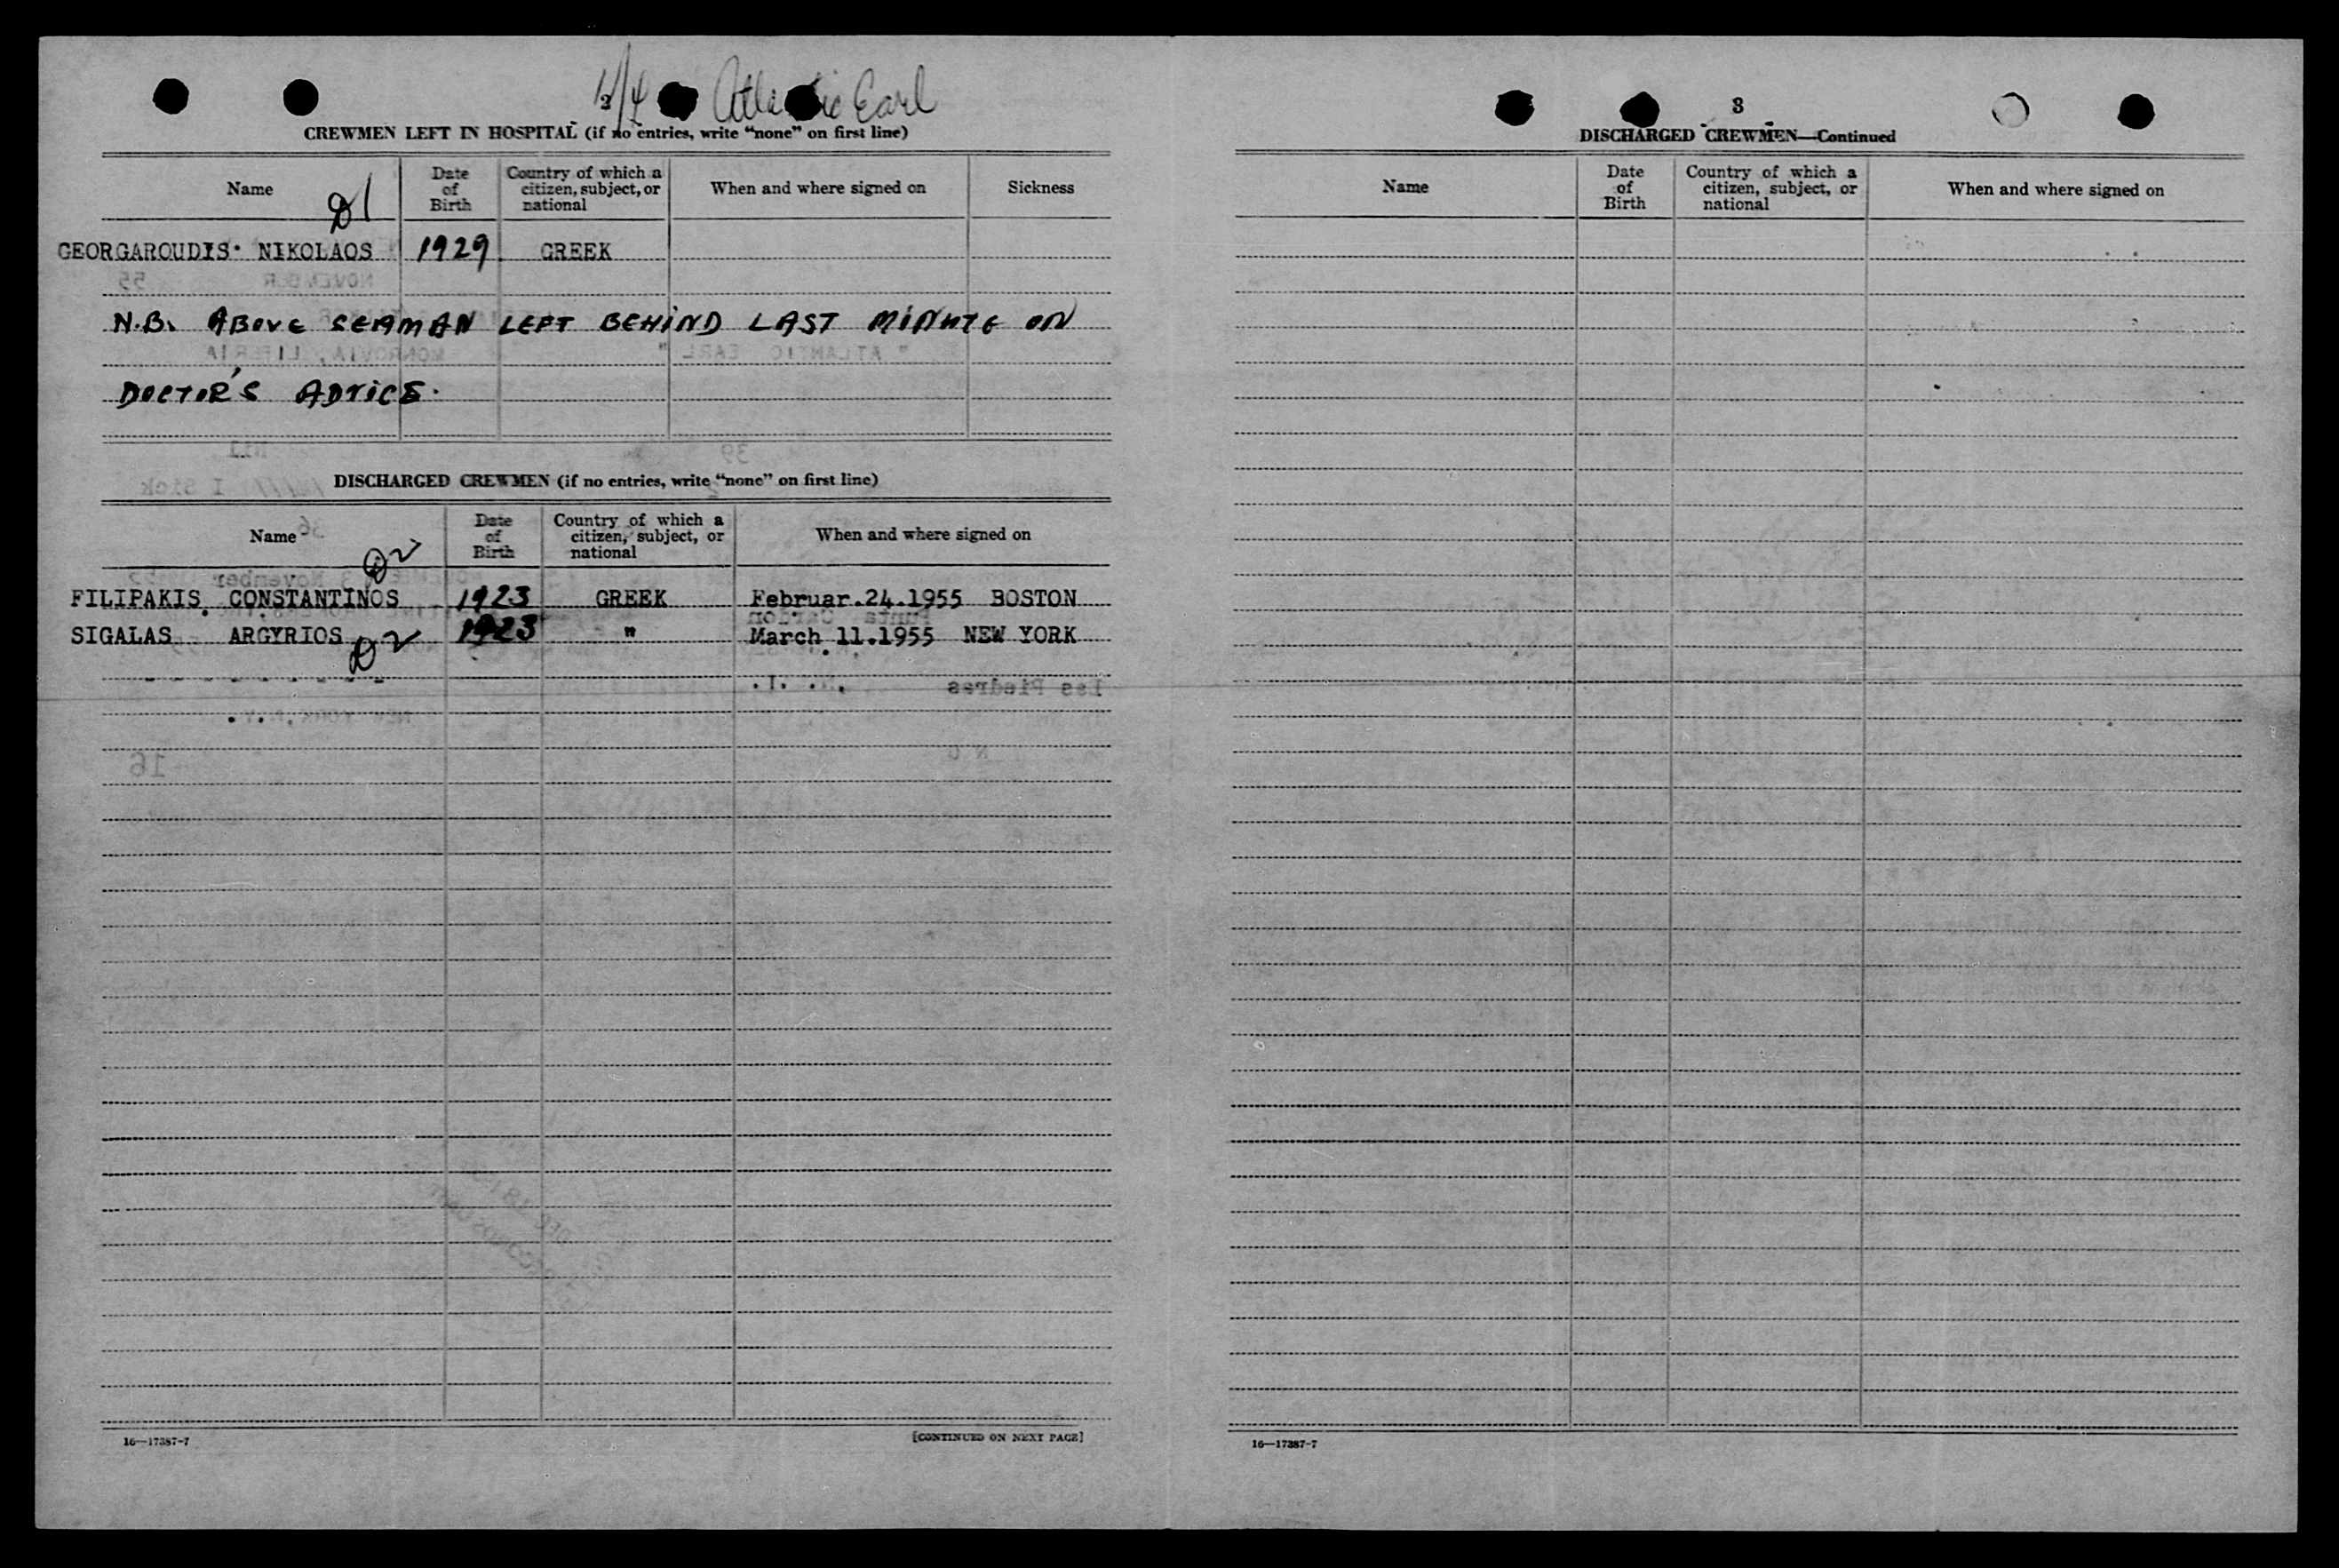 11/4 Atlantic Earl
2
CREWMEN LEFT IN HOSPITAL (if no entries, write “none” on first line)
Name Date of Birth Country of which a citizen, subject, or national When and where signed on Sickness
D1
GEORGAROUDIS NIKOLAOS 1929 GREEK
N.B. ABOVE SEAMAN LEFT BEHIND LAST MINUTE ON
DOCTOR'S ADVICE.
DISCHARGED CREWMEN (if no entries, write “none” on first line)
Name Date of Birth Country of which a citizen, subject, or national When and where signed on
D2
FILIPAKIS CONSTANTINOS 1923 GREEK Februar.24.1955 BOSTON
SIGALAS ARGYRIOS D2 1923 " March 11.1955 NEW YORK
16—17387-7 [CONTINUED ON NEXT PAGE]
3
DISCHARGED CREWMEN—Continued
Name Date of Birth Country of which a citizen, subject, or national When and where signed on
16—17387-7